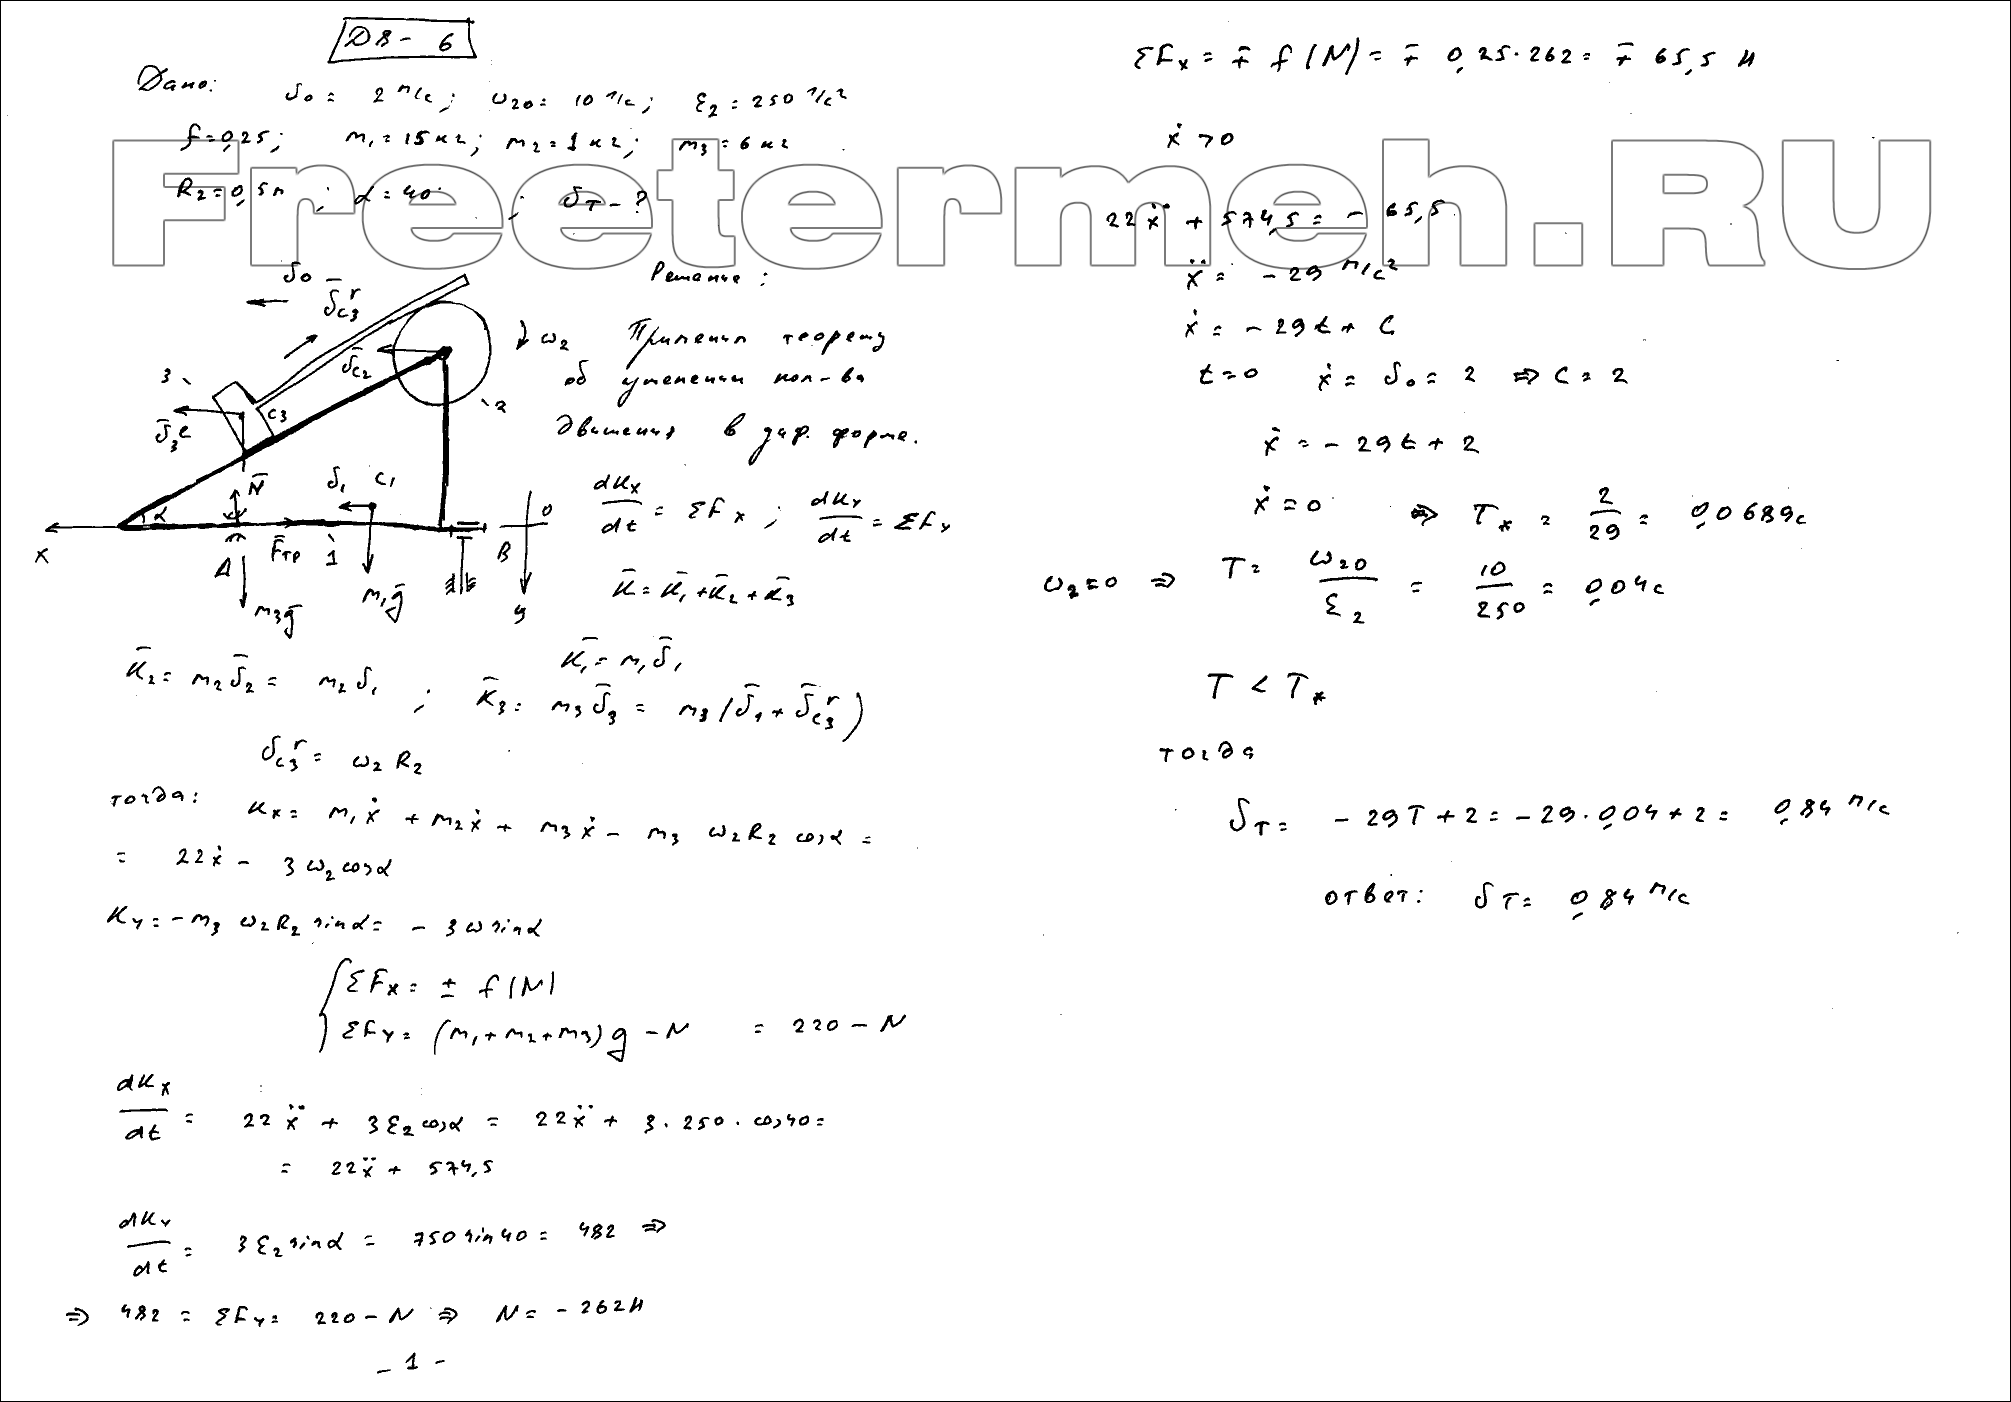 Д8 - 6
Дано: υ0 = 2 м/с; ω20 = 10 1/с; ε2 = 250 1/с²
f = 0,25; m1 = 15 кг; m2 = 1 кг; m3 = 6 кг
R2 = 0,5 м; α = 40°; υT - ?
Freetermeh.RU
Решение:
υ0
ῡrC3
ω2
3
ῡC2
2
C3
ῡ3e
N̄
υ1 C1
α
X
A
F̄тр
1
B
O
m3ḡ
m1ḡ
y
Применим теорему
об изменении кол-ва
движения в диф. форме.
dKx/dt = ΣFx; dKy/dt = ΣFy
K̄ = K̄1 + K̄2 + K̄3
K̄1 = m1ῡ1
K̄2 = m2ῡ2 = m2υ1; K̄3 = m3ῡ3 = m3(ῡ1 + ῡrC3)
υrC3 = ω2R2
тогда: Kx = m1ẋ + m2ẋ + m3ẋ - m3 ω2R2 cosα =
= 22ẋ - 3ω2cosα
Ky = -m3 ω2R2 sinα = - 3ω sinα
ΣFx = ± f|N|
ΣFy = (m1 + m2 + m3)g - N = 220 - N
dKx/dt = 22ẍ + 3ε2cosα = 22ẍ + 3·250·cos40 =
= 22ẍ + 574,5
dKy/dt = 3ε2sinα = 750sin40 = 482 ⇒
⇒ 482 = ΣFy = 220 - N ⇒ N = -262 Н
- 1 -
ΣFx = ∓ f|N| = ∓ 0,25·262 = ∓ 65,5 Н
ẋ > 0
22ẍ + 574,5 = - 65,5
ẍ = -29 м/с²
ẋ = -29t + C
t = 0 ẋ = υ0 = 2 ⇒ C = 2
ẋ = -29t + 2
ẋ = 0 ⇒ T* = 2/29 = 0,0689с
ω2 = 0 ⇒ T = ω20/ε2 = 10/250 = 0,04с
T < T*
тогда
υT = -29T + 2 = -29·0,04 + 2 = 0,84 м/с
ответ: υT = 0,84 м/с